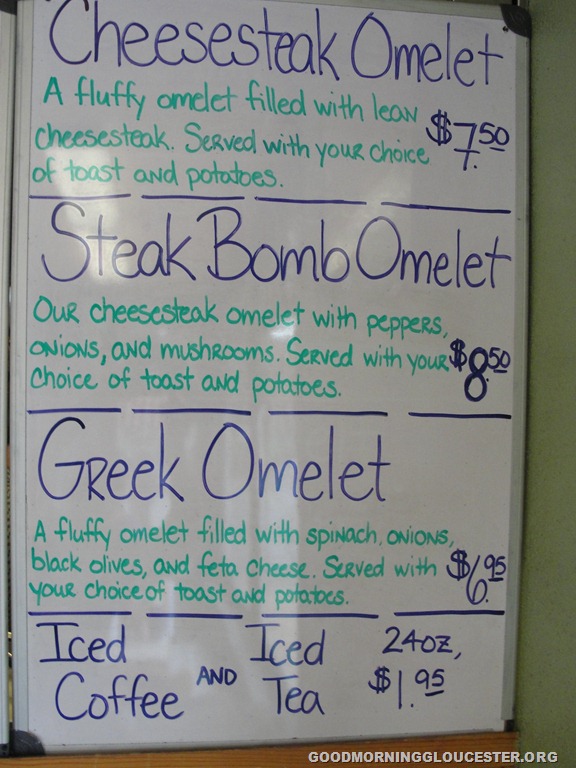 Cheesesteak Omelet
A fluffy omelet filled with lean
cheesesteak. Served with your choice $7.50
of toast and potatoes.
Steak Bomb Omelet
Our cheesesteak omelet with peppers,
onions, and mushrooms. Served with your $8.50
choice of toast and potatoes.
Greek Omelet
A fluffy omelet filled with spinach, onions,
black olives, and feta cheese. Served with $6.95
your choice of toast and potatoes.
Iced Coffee AND Iced Tea 24oz, $1.95
GOODMORNINGGLOUCESTER.ORG